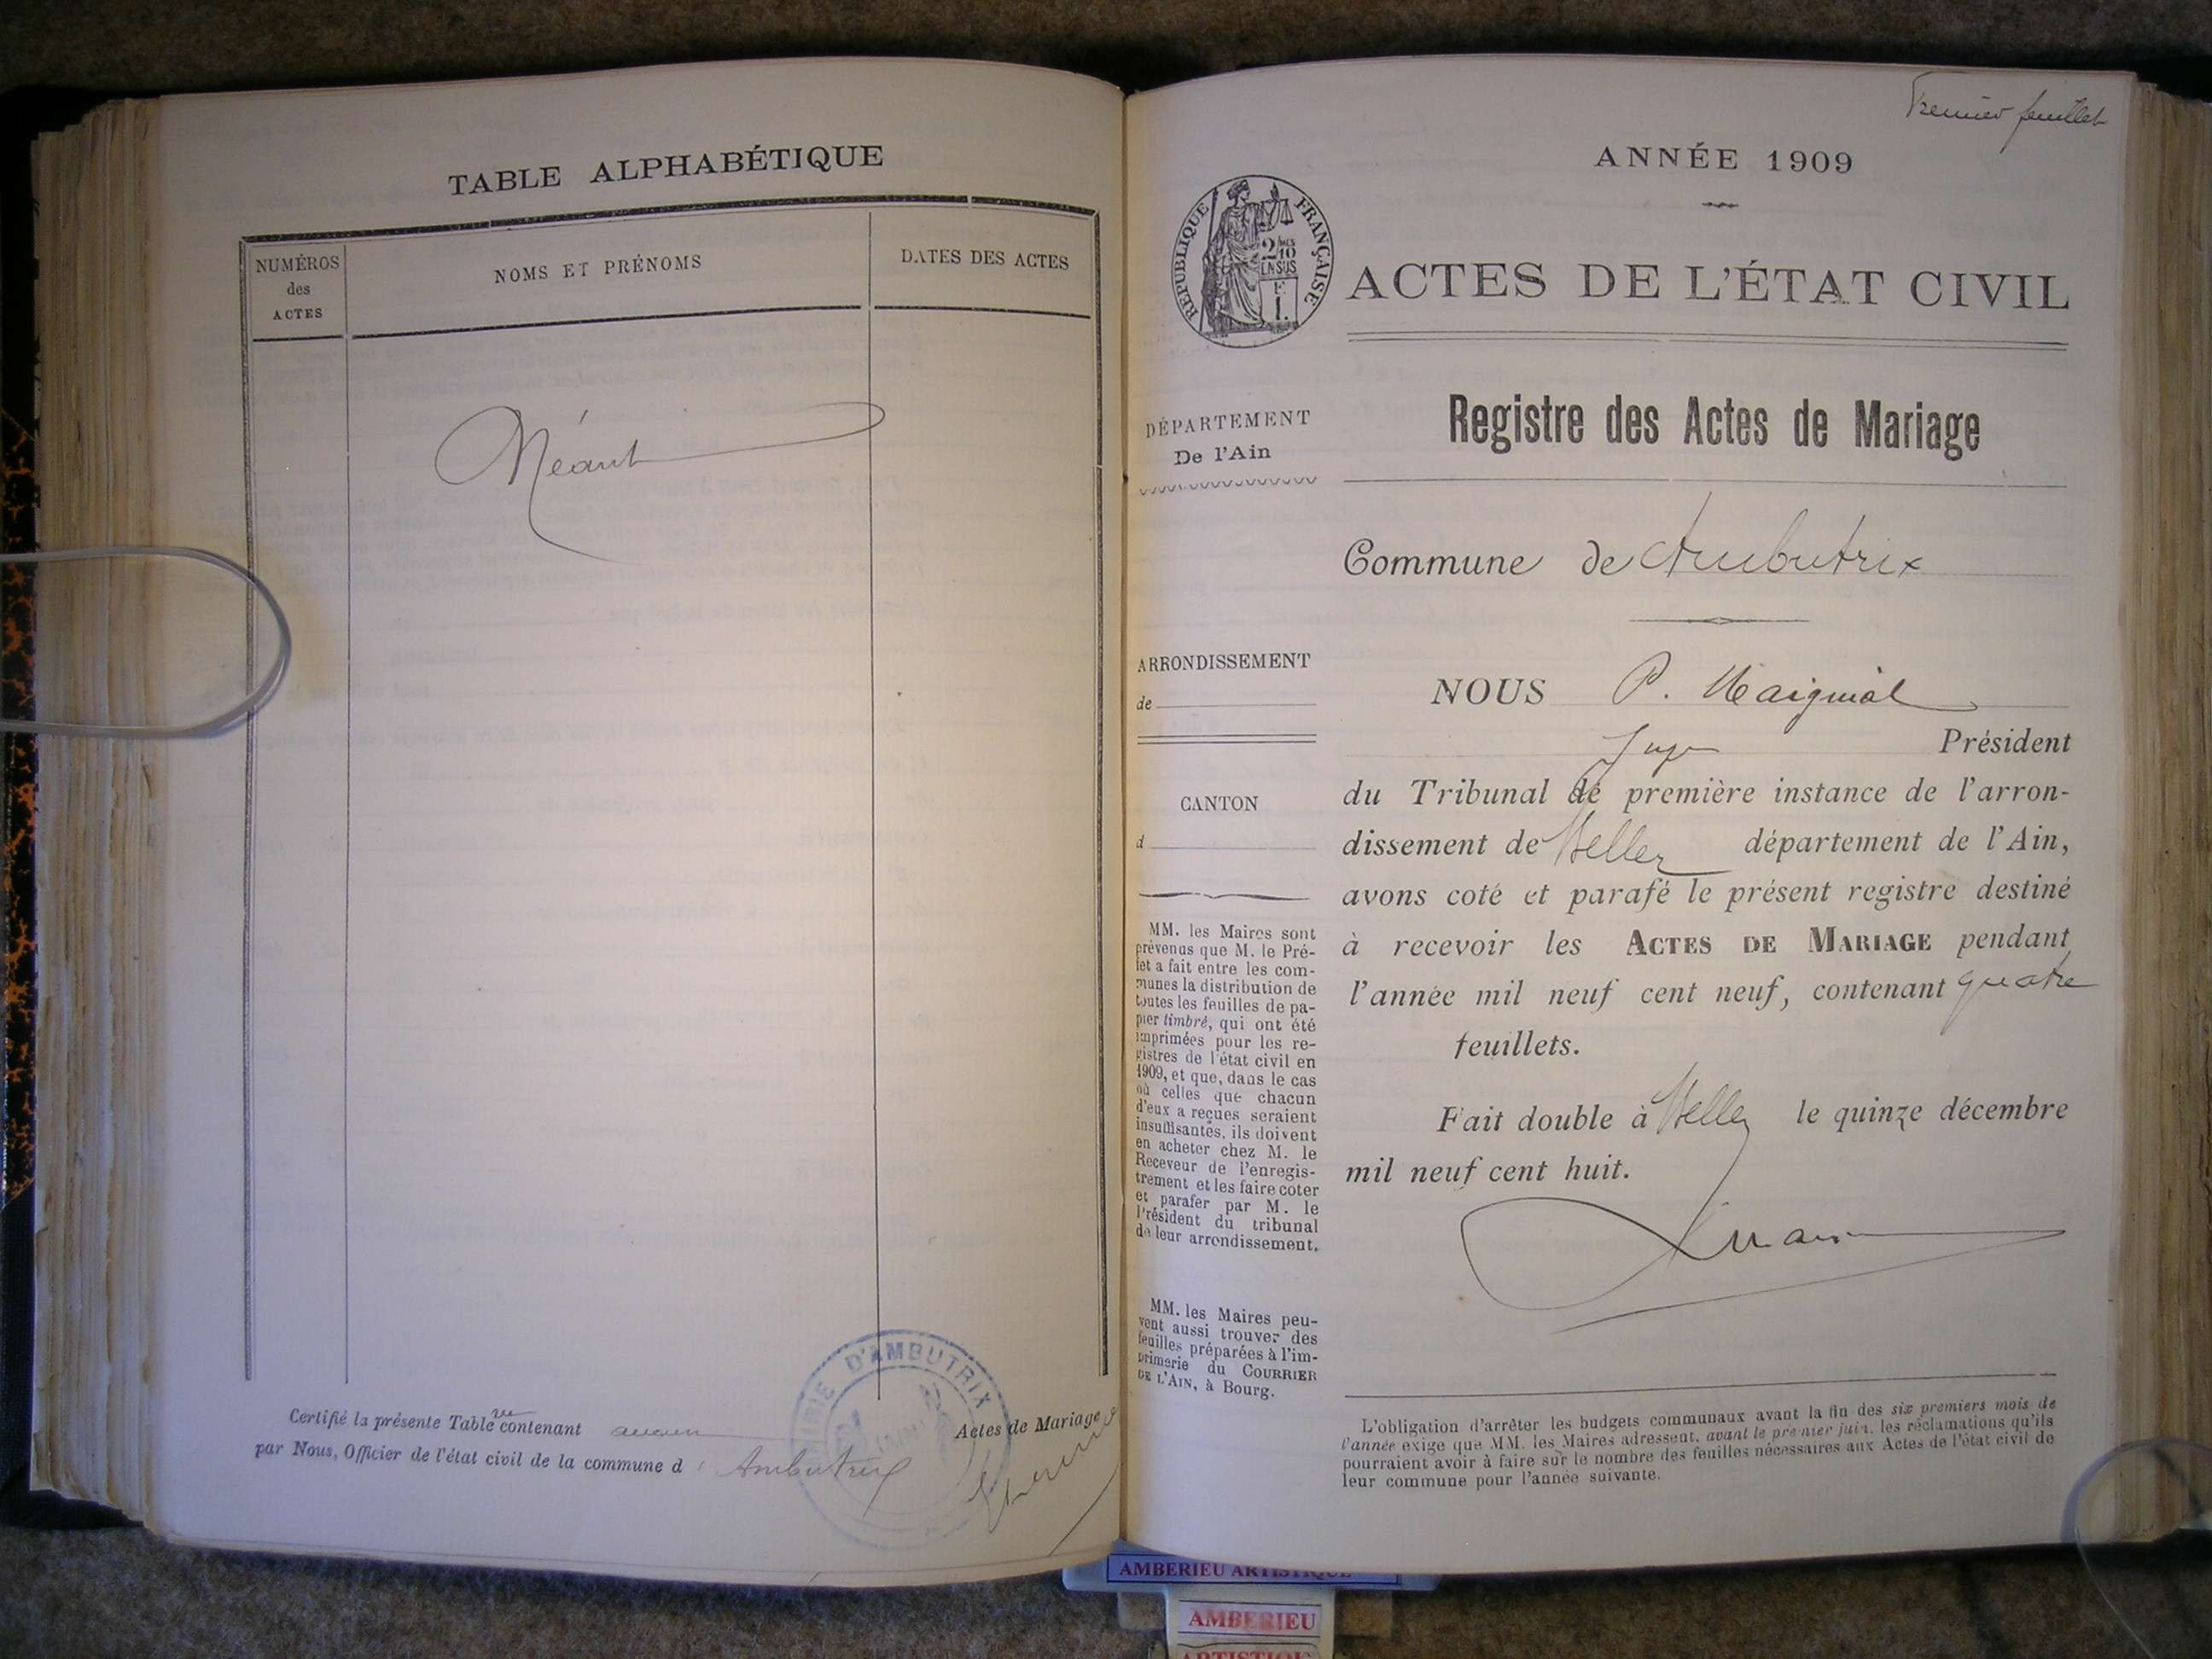 TABLE ALPHABÉTIQUE
NUMÉROS
des
ACTES
NOMS ET PRÉNOMS
DATES DES ACTES
Néant
Certifié la présente Table contenant aucun Actes de Mariage
par Nous, Officier de l'état civil de la commune d Ambutrix
MAIRIE D'AMBUTRIX
Premier feuillet
ANNÉE 1909
RÉPUBLIQUE FRANÇAISE
2/10
EN SUS
1 F.
ACTES DE L'ÉTAT CIVIL
Registre des Actes de Mariage
DÉPARTEMENT
De l'Ain
Commune de Ambutrix
ARRONDISSEMENT
de
CANTON
d
MM. les Maires sont
prévenus que M. le Pré-
fet a fait entre les com-
munes la distribution de
toutes les feuilles de pa-
pier timbré, qui ont été
imprimées pour les re-
gistres de l'état civil en
1909, et que, dans le cas
où celles que chacun
d'eux a reçues seraient
insuffisantes, ils doivent
en acheter chez M. le
Receveur de l'enregis-
trement et les faire coter
et parafer par M. le
Président du tribunal
de leur arrondissement.
MM. les Maires peu-
vent aussi trouver des
feuilles préparées à l'im-
primerie du COURRIER
DE L'AIN, à Bourg.
NOUS P. Maignial
Juge Président
du Tribunal de première instance de l'arron-
dissement de Belley département de l'Ain,
avons coté et parafé le présent registre destiné
à recevoir les ACTES DE MARIAGE pendant
l'année mil neuf cent neuf, contenant quatre
feuillets.
Fait double à Belley le quinze décembre
mil neuf cent huit.
L'obligation d'arrêter les budgets communaux avant la fin des six premiers mois de
l'année exige que MM. les Maires adressent, avant le premier juin, les réclamations qu'ils
pourraient avoir à faire sur le nombre des feuilles nécessaires aux Actes de l'état civil de
leur commune pour l'année suivante.
AMBERIEU ARTISTIQUE
AMBERIEU
ARTISTIQUE